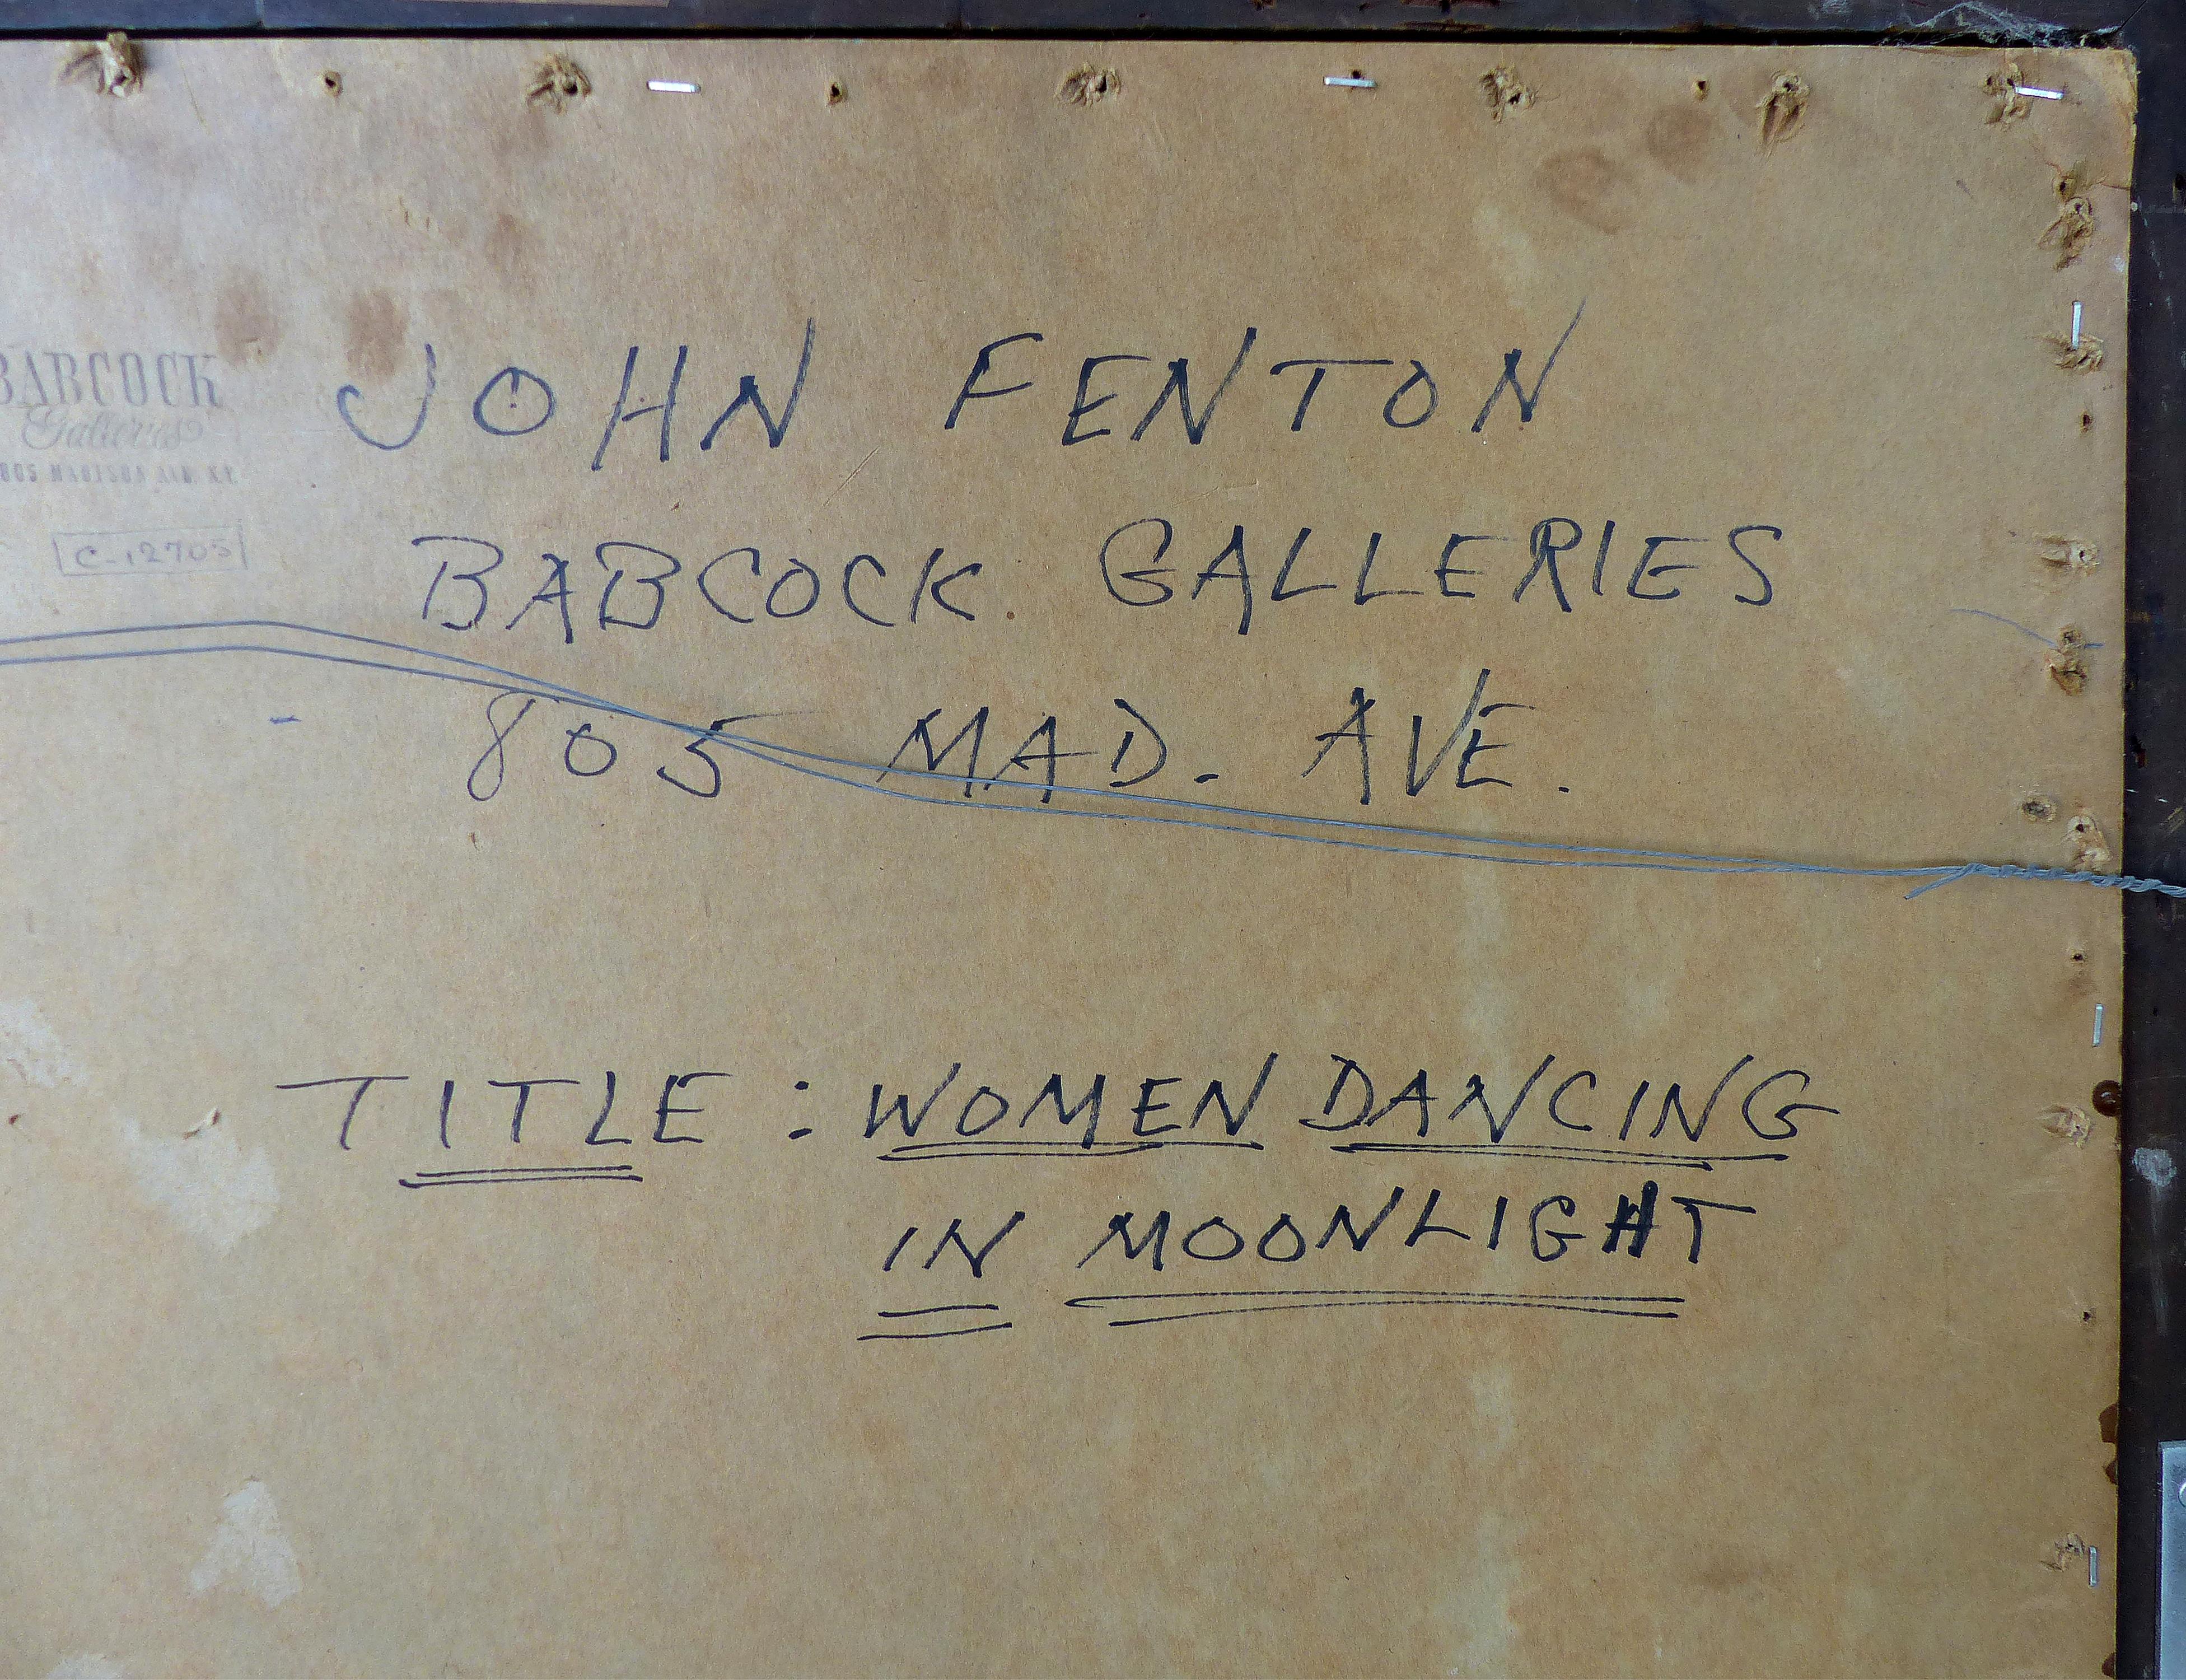 BABCOCK
Galleries
805 MADISON AVE. N.Y.
C-12705
JOHN FENTON
BABCOCK GALLERIES
805 MAD. AVE.
TITLE : WOMEN DANCING
IN MOONLIGHT